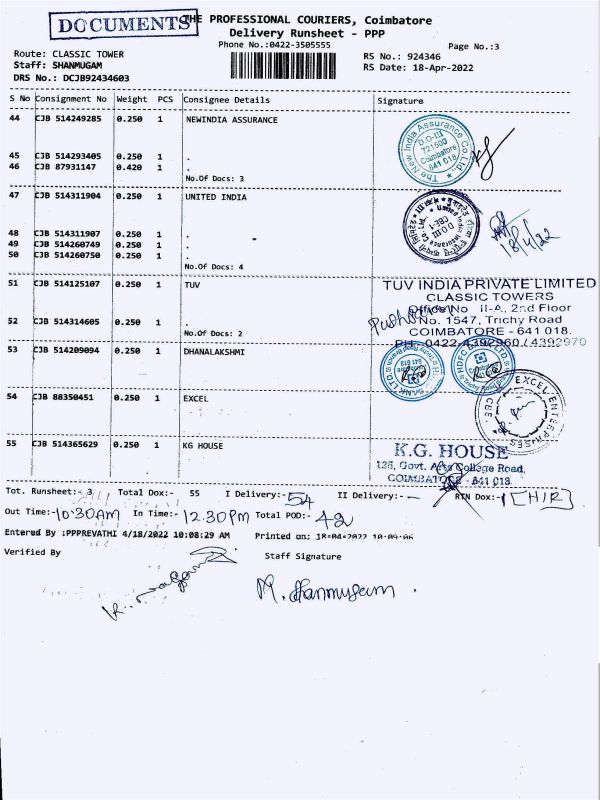 DOCUMENTS
THE PROFESSIONAL COURIERS, Coimbatore
Delivery Runsheet - PPP
Phone No.:0422-3505555
Page No.:3
Route: CLASSIC TOWER
RS No.: 924346
Staff: SHANMUGAM
RS Date: 18-Apr-2022
DRS No.: DCJB92434603
S No Consignment No Weight PCS Consignee Details Signature
44 CJB 514249285 0.250 1 NEWINDIA ASSURANCE
The New India Assurance Co.Ltd
D.O-III
721500
Coimbatore
641 018
45 CJB 514293405 0.250 1 .
46 CJB 87931147 0.420 1 .
No.Of Docs: 3
47 CJB 514311904 0.250 1 UNITED INDIA
48 CJB 514311907 0.250 1 .
18/4/22
49 CJB 514260749 0.250 1 .
50 CJB 514260750 0.250 1 .
No.Of Docs: 4
51 CJB 514125107 0.250 1 TUV
TUV INDIA PRIVATE LIMITED
CLASSIC TOWERS
Office No II-A, 2nd Floor
No. 1547, Trichy Road
COIMBATORE - 641 018.
PH. 0422-4392960 / 4392970
52 CJB 514314605 0.250 1 .
No.Of Docs: 2
53 CJB 514209094 0.250 1 DHANALAKSHMI
54 CJB 88350451 0.250 1 EXCEL
EXCEL ENTERPRISES
CBE
55 CJB 514365629 0.250 1 KG HOUSE
K.G. HOUSE
125, Govt. Arts College Road,
COIMBATORE - 641 018.
Tot. Runsheet:- 3 Total Dox:- 55 I Delivery:- 54 II Delivery:- - RTN Dox:- 1 [H/R]
Out Time:- 10:30AM In Time:- 12.30PM Total POD:- 42
Entered By :PPPREVATHI 4/18/2022 10:08:29 AM Printed on: 18-04-2022 10:09:06
Verified By Staff Signature
M. Shanmugam .